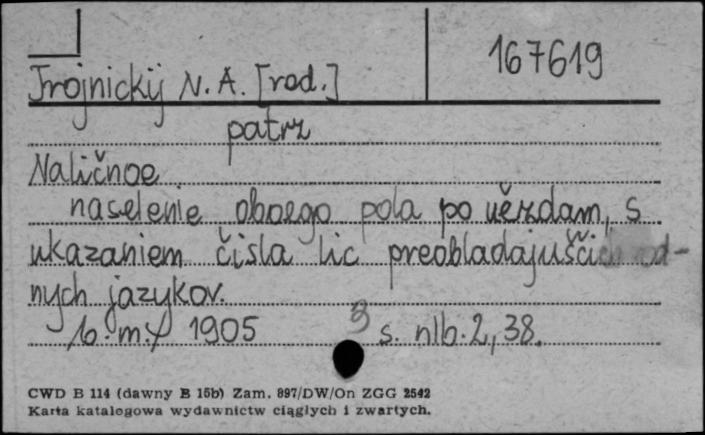 167619
Trojnickij N. A. [red.]
patrz
Naličnoe
naselenie oboego pola po uězdam, s
ukazaniem čisla lic preobladajuščich rod-
nych jazykov.
b. m. 1905 8 s. nlb. 2, 38.
CWD B 114 (dawny B 15b) Zam. 897/DW/On ZGG 2542
Karta katalogowa wydawnictw ciągłych i zwartych.